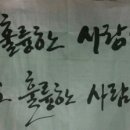 훌륭한 사람
훌륭한 사람